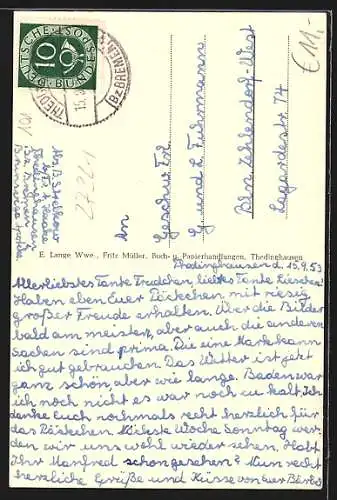 DEUTSCHE BUNDESPOST
10
THEDINGHAUSEN
(Bz BREMEN)
15.9
€11,-
100
27321
An
Geschw. Frl.
G. und L. Fuhrmann
Bln Zehlendorf-West
74
Abs. B.
b/
Thedinghausen
Bez Bremen
Braunschweig
E. Lange Wwe., Fritz Müller, Buch- u. Papierhandlungen, Thedinghausen
Thedinghausen d. 15.9.53
Allerliebstes Tante Trudchen, liebes Tante Lieschen!
Haben eben Euer Päckchen mit riesig
großer Freude erhalten. Über die Bilder
bald am meisten, aber auch die anderen
Sachen sind prima. Die eine Mark kann
ich gut gebrauchen. Das Wetter ist jetzt
ganz schön, aber wie lange. Baden war
ich noch nicht es war noch zu kalt. Ich
danke Euch nochmals recht herzlich für
das Päckchen. Nächste Woche Sonntag wer-
den wir uns wohl wieder sehen. Habt
Ihr Manfred schon gesehen? Nun recht
herzliche Grüße und Küsse von Eurer Bärbel